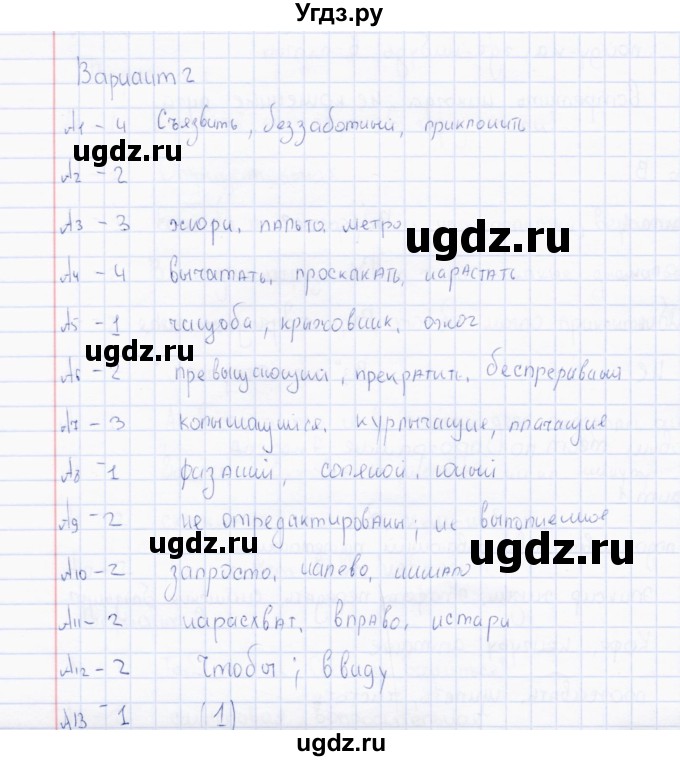 Угдз.ру
Вариант 2
А1 - 4 Съязвить, беззаботный, приклонить
ugdz.ru
А2 - 2
А3 - 3 жюри, пальто, метро
ugdz.ru
А4 - 4 вычитать, проскакать, нарастать
А5 - 1 чащоба, крыжовник, ожог
ugdz.ru
А6 - 2 превышающий, прекратить, беспрерывный
А7 - 3 колышащийся, курлычащие, плачащие
А8 - 1 фазаний, соляной, юный
А9 - 2 не отредактированы; не выполненное
ugdz.ru
ugdz.ru
А10 - 2 запросто, налево, мимало
А11 - 2 нарасхват, вправо, истари
А12 - 2 Чтобы; ввиду
А13 - 1 (1)
ugdz.ru